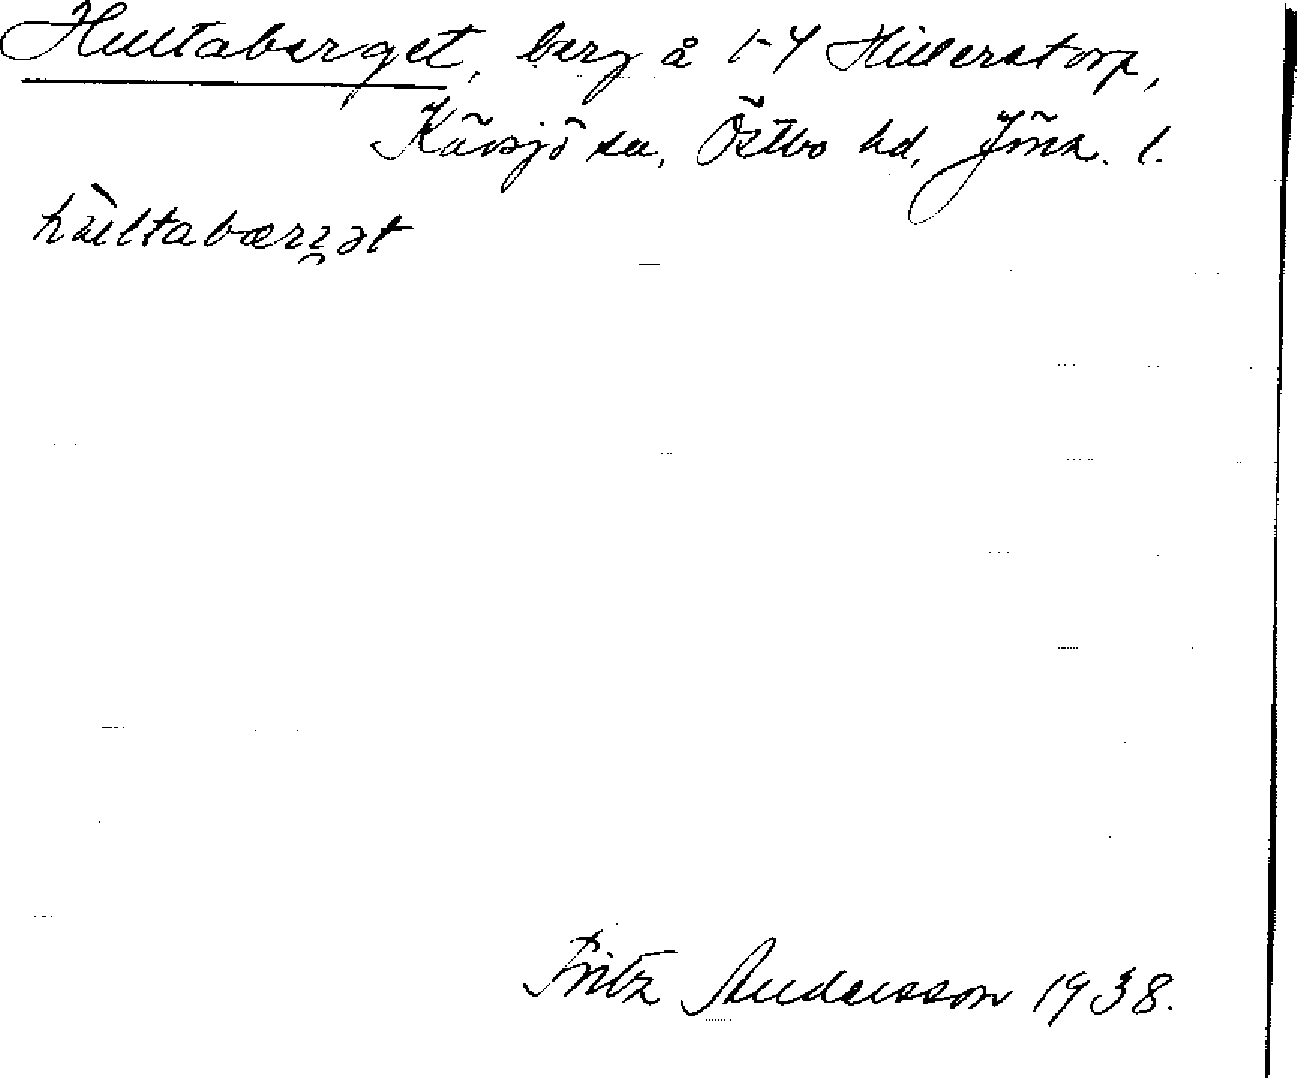 Hultaberget, berg å 1-4 Hillerstorp,
Kävsjö sn, Östbo hd, Jönk. l.
hùltabærgət
Fritz Andersson 1938.